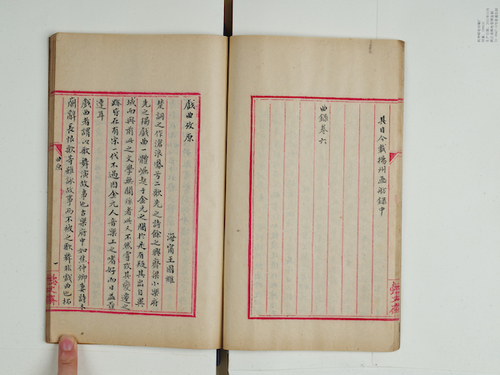 其目今載揚州畫舫錄中
曲錄卷六
戲曲攷原
海甯王國維
楚詞之作滄浪鳳兮二歌先之詩餘之興齊梁小樂府
先之獨戲曲一體崛起于金元之間於是有疑其出自異
域而與前此之文學無關係者此又不然嘗攷其變遷之
跡皆在有宋一代不過因金元人音樂上之嗜好而日益發
達耳
戲曲者謂以歌舞演故事也古樂府中如焦仲卿妻詩木
蘭辭長恨歌等雖詠故事而不被之歌舞非戲曲也柘
一